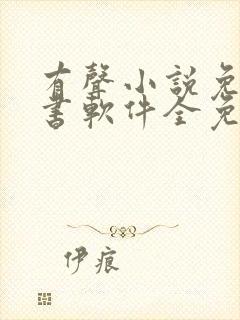 有聲小説免
書軟件全免
伊痕